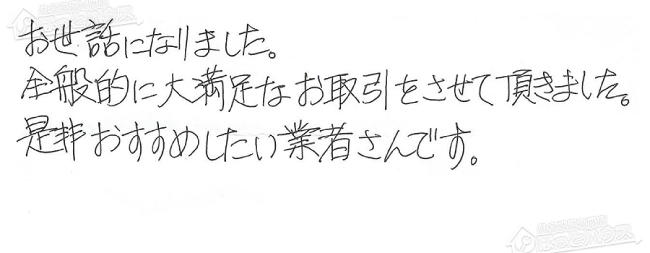 お世話になりました。
全般的に大満足なお取引をさせて頂きました。
是非おすすめしたい業者さんです。